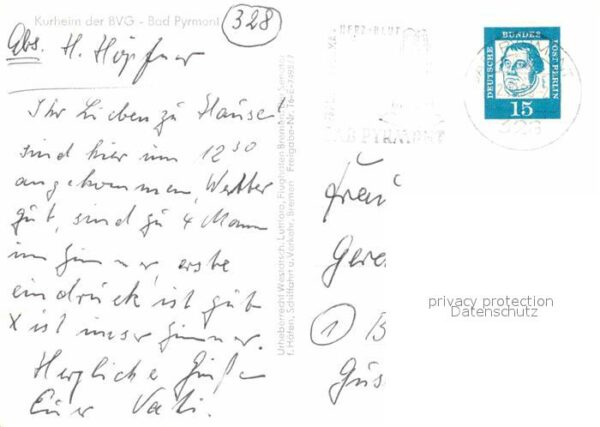 Kurheim der BVG - Bad Pyrmont
328
Abs. H. Höpfner
Ihr Lieben zu Hause!
sind hier um 12 30
angekommen, Wetter
gut, sind zu 4 Mann
im Zimmer, erste
eindrück ist gut
X ist unser Zimmer.
Herzliche Grüße
Euer Vati.
Urheberrecht
f. Häfen, Schiffahrt u. Verkehr, Bremen Freigabe-Nr.
HERZ-BLUT
BAD PYRMONT
DEUTSCHE BUNDESPOST BERLIN
15
Frau
Gere
1 B
Gus
privacy protection
Datenschutz